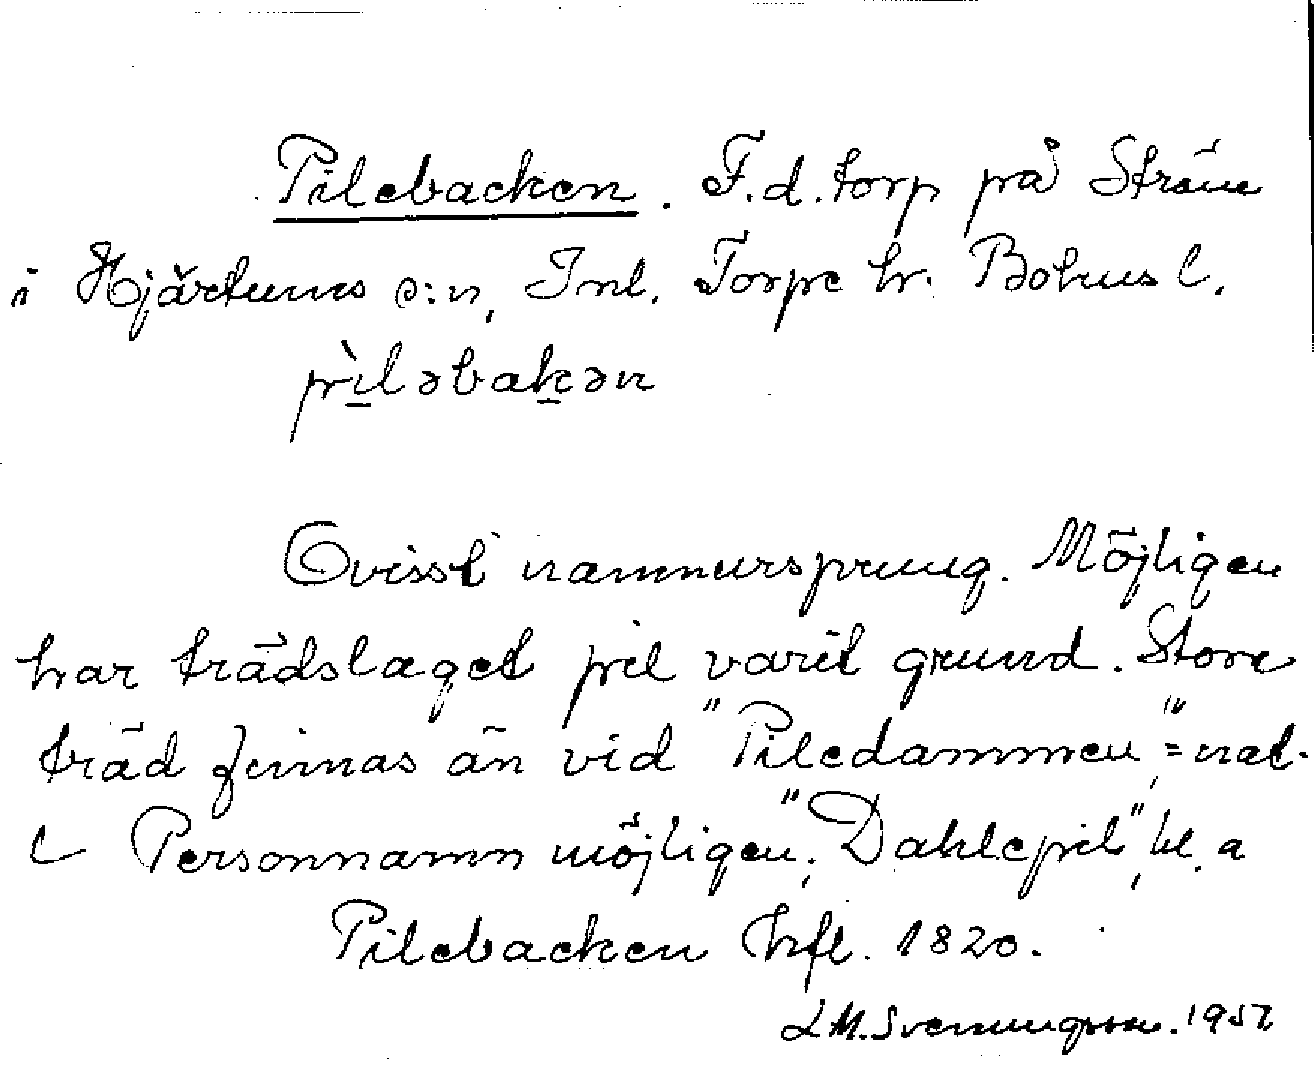 Pilebacken. F.d. torp på Ström
i Hjärtums s:n, Inl. Torpe hr. Bohusl.
pìləbakən
Ovisst namnursprung. Möjligen
har trädslaget pil varit grund. Stora
träd finnas än vid "Piledammen",=nat.
Personnamn möjligen; "Dahlepil",
Pilebacken hfl. 1820.
L M. Svenungsson. 1957